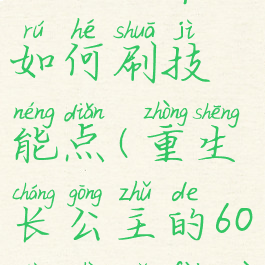 rú hé shuā jì
如何刷技
néng diǎn zhòng shēng
能点(重生
cháng gōng zhǔ de
长公主的60